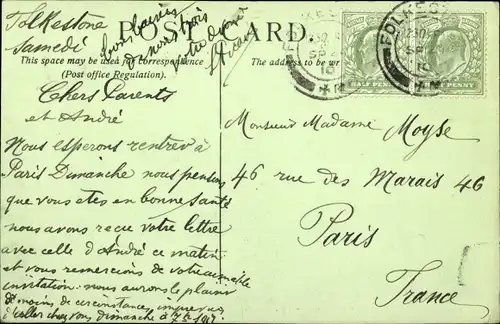 Folkestone
Samedi
bons baisers
de nous trois
POST CARD.
This space may be used for correspondence
(Post office Regulation).
The address to be wr
FOLKESTO
SP
10
HALF PENNY
PENNY
Chers Parents
et André
Nous esperons rentrer à
Paris Dimanche nous pensons
que vous etes en bonne santé
nous avons reçu votre lettre
avec celle d'André ce matin
et vous remercions de votre aimable
invitation. nous aurons le plaisir
à moins de circonstances imprevues
d'aller chez vous dimanche à 7h
Monsieur Madame Moyse
46 rue des Marais 46
Paris
France